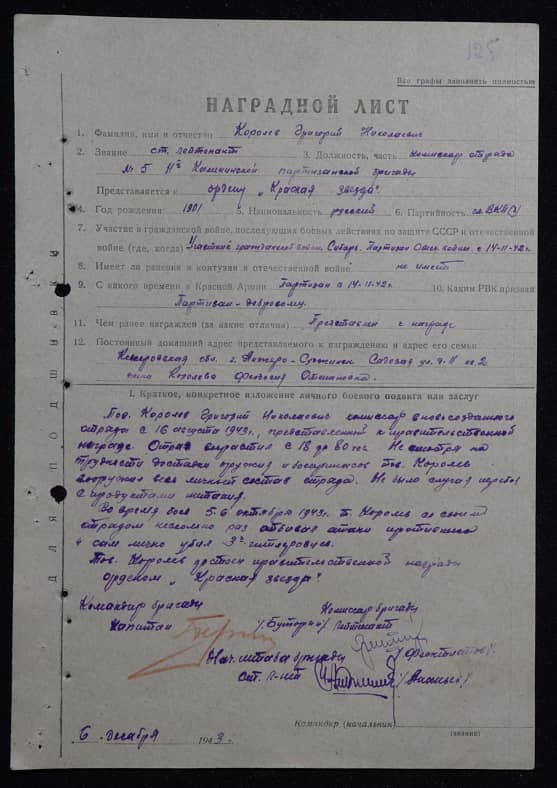 125
Все графы заполнять полностью
НАГРАДНОЙ ЛИСТ
1. Фамилия, имя и отчество Королев Григорий Николаевич
2. Звание ст. лейтенант 3. Должность, часть комиссар отряда
№ 5 11й Калининской партизанской бригады
Представляется к ордену „Красная звезда"
4. Год рождения 1901 5. Национальность русский 6. Партийность чл. ВКП(б)
7. Участие в гражданской войне, последующих боевых действиях по защите СССР и отечественной
войне (где, когда) Участник гражданской войны Сибирь. Партизан Отеч. войны с 14-11-42 г.
8. Имеет ли ранения и контузии в отечественной войне не имеет
9. С какого времени в Красной Армии Партизан с 14-11-42 г. 10. Каким РВК призван
Партизан-доброволец.
11. Чем ранее награжден (за какие отличия) Представлен к награде
12. Постоянный домашний адрес представляемого к награждению и адрес его семьи
Кемеровская обл. г. Анжеро-Судженск Садовая ул. д.
жена Королева
I. Краткое, конкретное изложение личного боевого подвига или заслуг
Тов. Королев Григорий Николаевич комиссар вновь созданного
отряда с 16 августа 1943 г., представленный к правительственной
награде. Отряд вырастил с 18 до 80 чел. Не смотря на
трудности доставки оружия и боеприпасов тов. Королев
вооружил весь личный состав отряда. Не было случая перебоя
с продуктами питания.
Во время боя 5-6 октября 1943 г. т. Королев со своим
отрядом несколько раз отбивал атаки противника
и сам лично убил 3х гитлеровцев.
Тов. Королев достоин правительственной награды
орденом „Красная звезда"
Командир бригады Комиссар бригады
Капитан /Буторин/ лейтенант
/Феоктистов/
Нач. штаба бригады
Ст. л-нт /Ананьев/
Командир (начальник)
(звание)
6 декабря 1943 г.
ДЛЯ ПОДШИВКИ